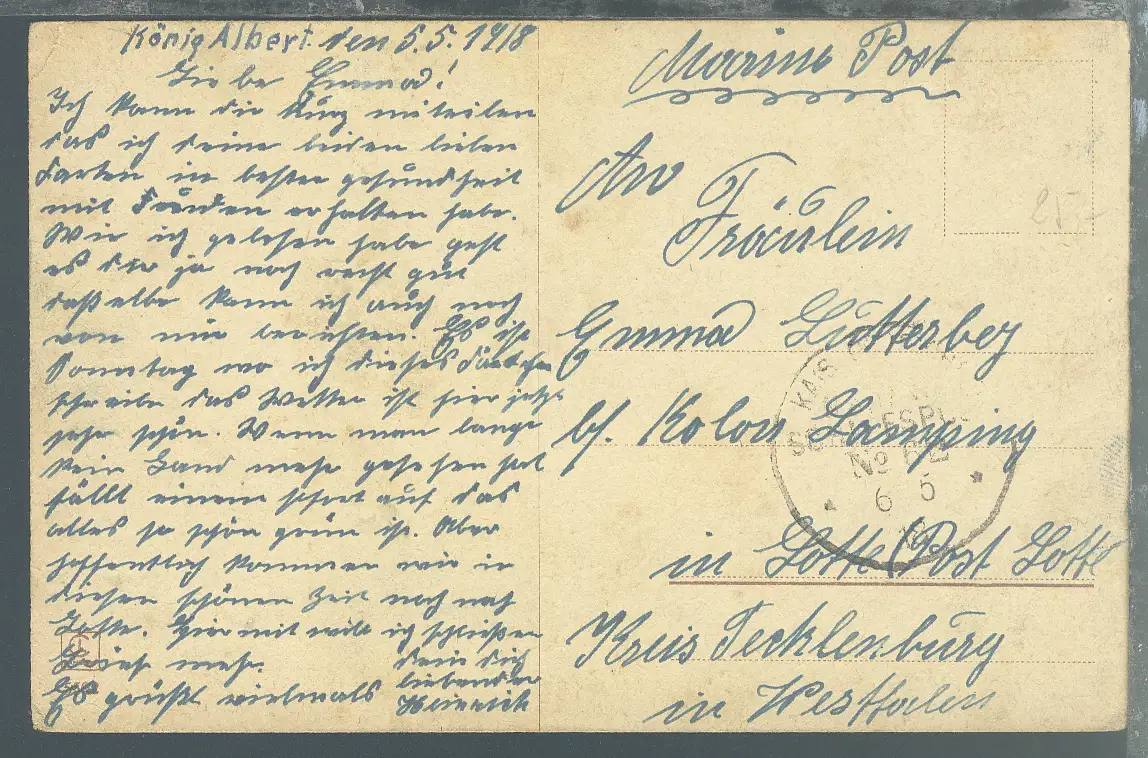 König Albert den 5.5.1918
Liebe Emma!
Ich kann dir kurz mitteilen
das ich deine beiden lieben
Karten in bester gesundheit
mit Freuden erhalten habe.
Wie ich gelesen habe geht
es dir ja noch recht gut
daßelbe kann ich auch noch
von mir berichten. Es ist
Sonntag wo ich dieses Kärtchen
schreibe das Wetter ist hier jetzt
sehr schön. Wenn man lange
kein Land mehr gesehen hat
fällt einem sofort auf das
alles so schön grün ist. Aber
hoffentlich kommen wir in
diesen schönen Zeit noch nach
Lotte. Hiermit will ich schließen
mehr.
Es grüßt vielmals
dein dich
liebender
Heinrich
Marine Post
An
Fräulein
Emma Lütterbey
b/. Kolon Lamping
in Lotte (Post Lotte
Kreis Tecklenburg
in Westfalen
25.-
KAIS.
No
6 5